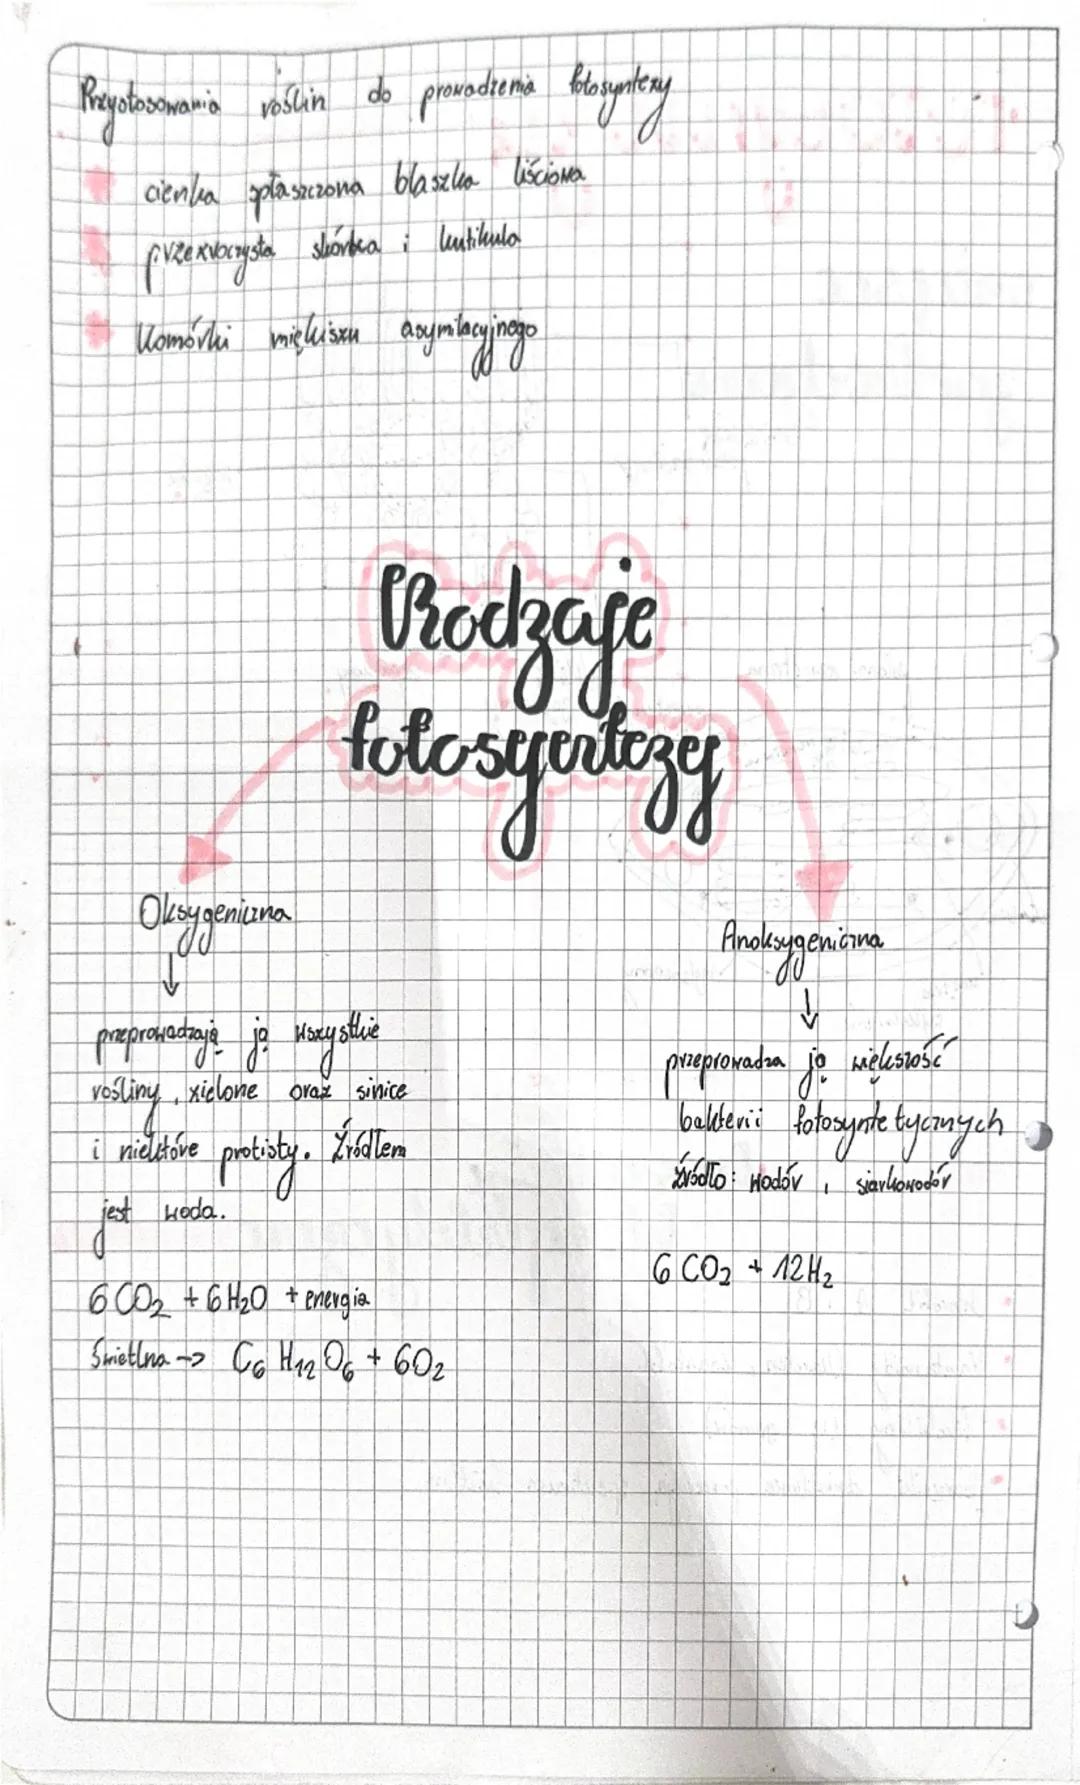 Przystosowania roślin do prowadzenia fotosyntezy
cienka spłaszczona blaszka liściowa
przezroczysta skórka i kutikula
Komórki miękiszu asymilacyjnego
Rodzaje
fotosyentezy
Oksygeniczna
↓
przeprowadzają ją wszystkie
rośliny, zielone oraz sinice
i niektóre protisty. Źródłem
jest woda.
6 CO₂ + 6 H₂O + energia
Świetlna -> C₆ H₁₂ O₆ + 6O₂
Anoksygeniczna
↓
przeprowadza ją większość
bakterii fotosyntetycznych
źródło: wodór, siarkowodór
6 CO₂ + 12H₂